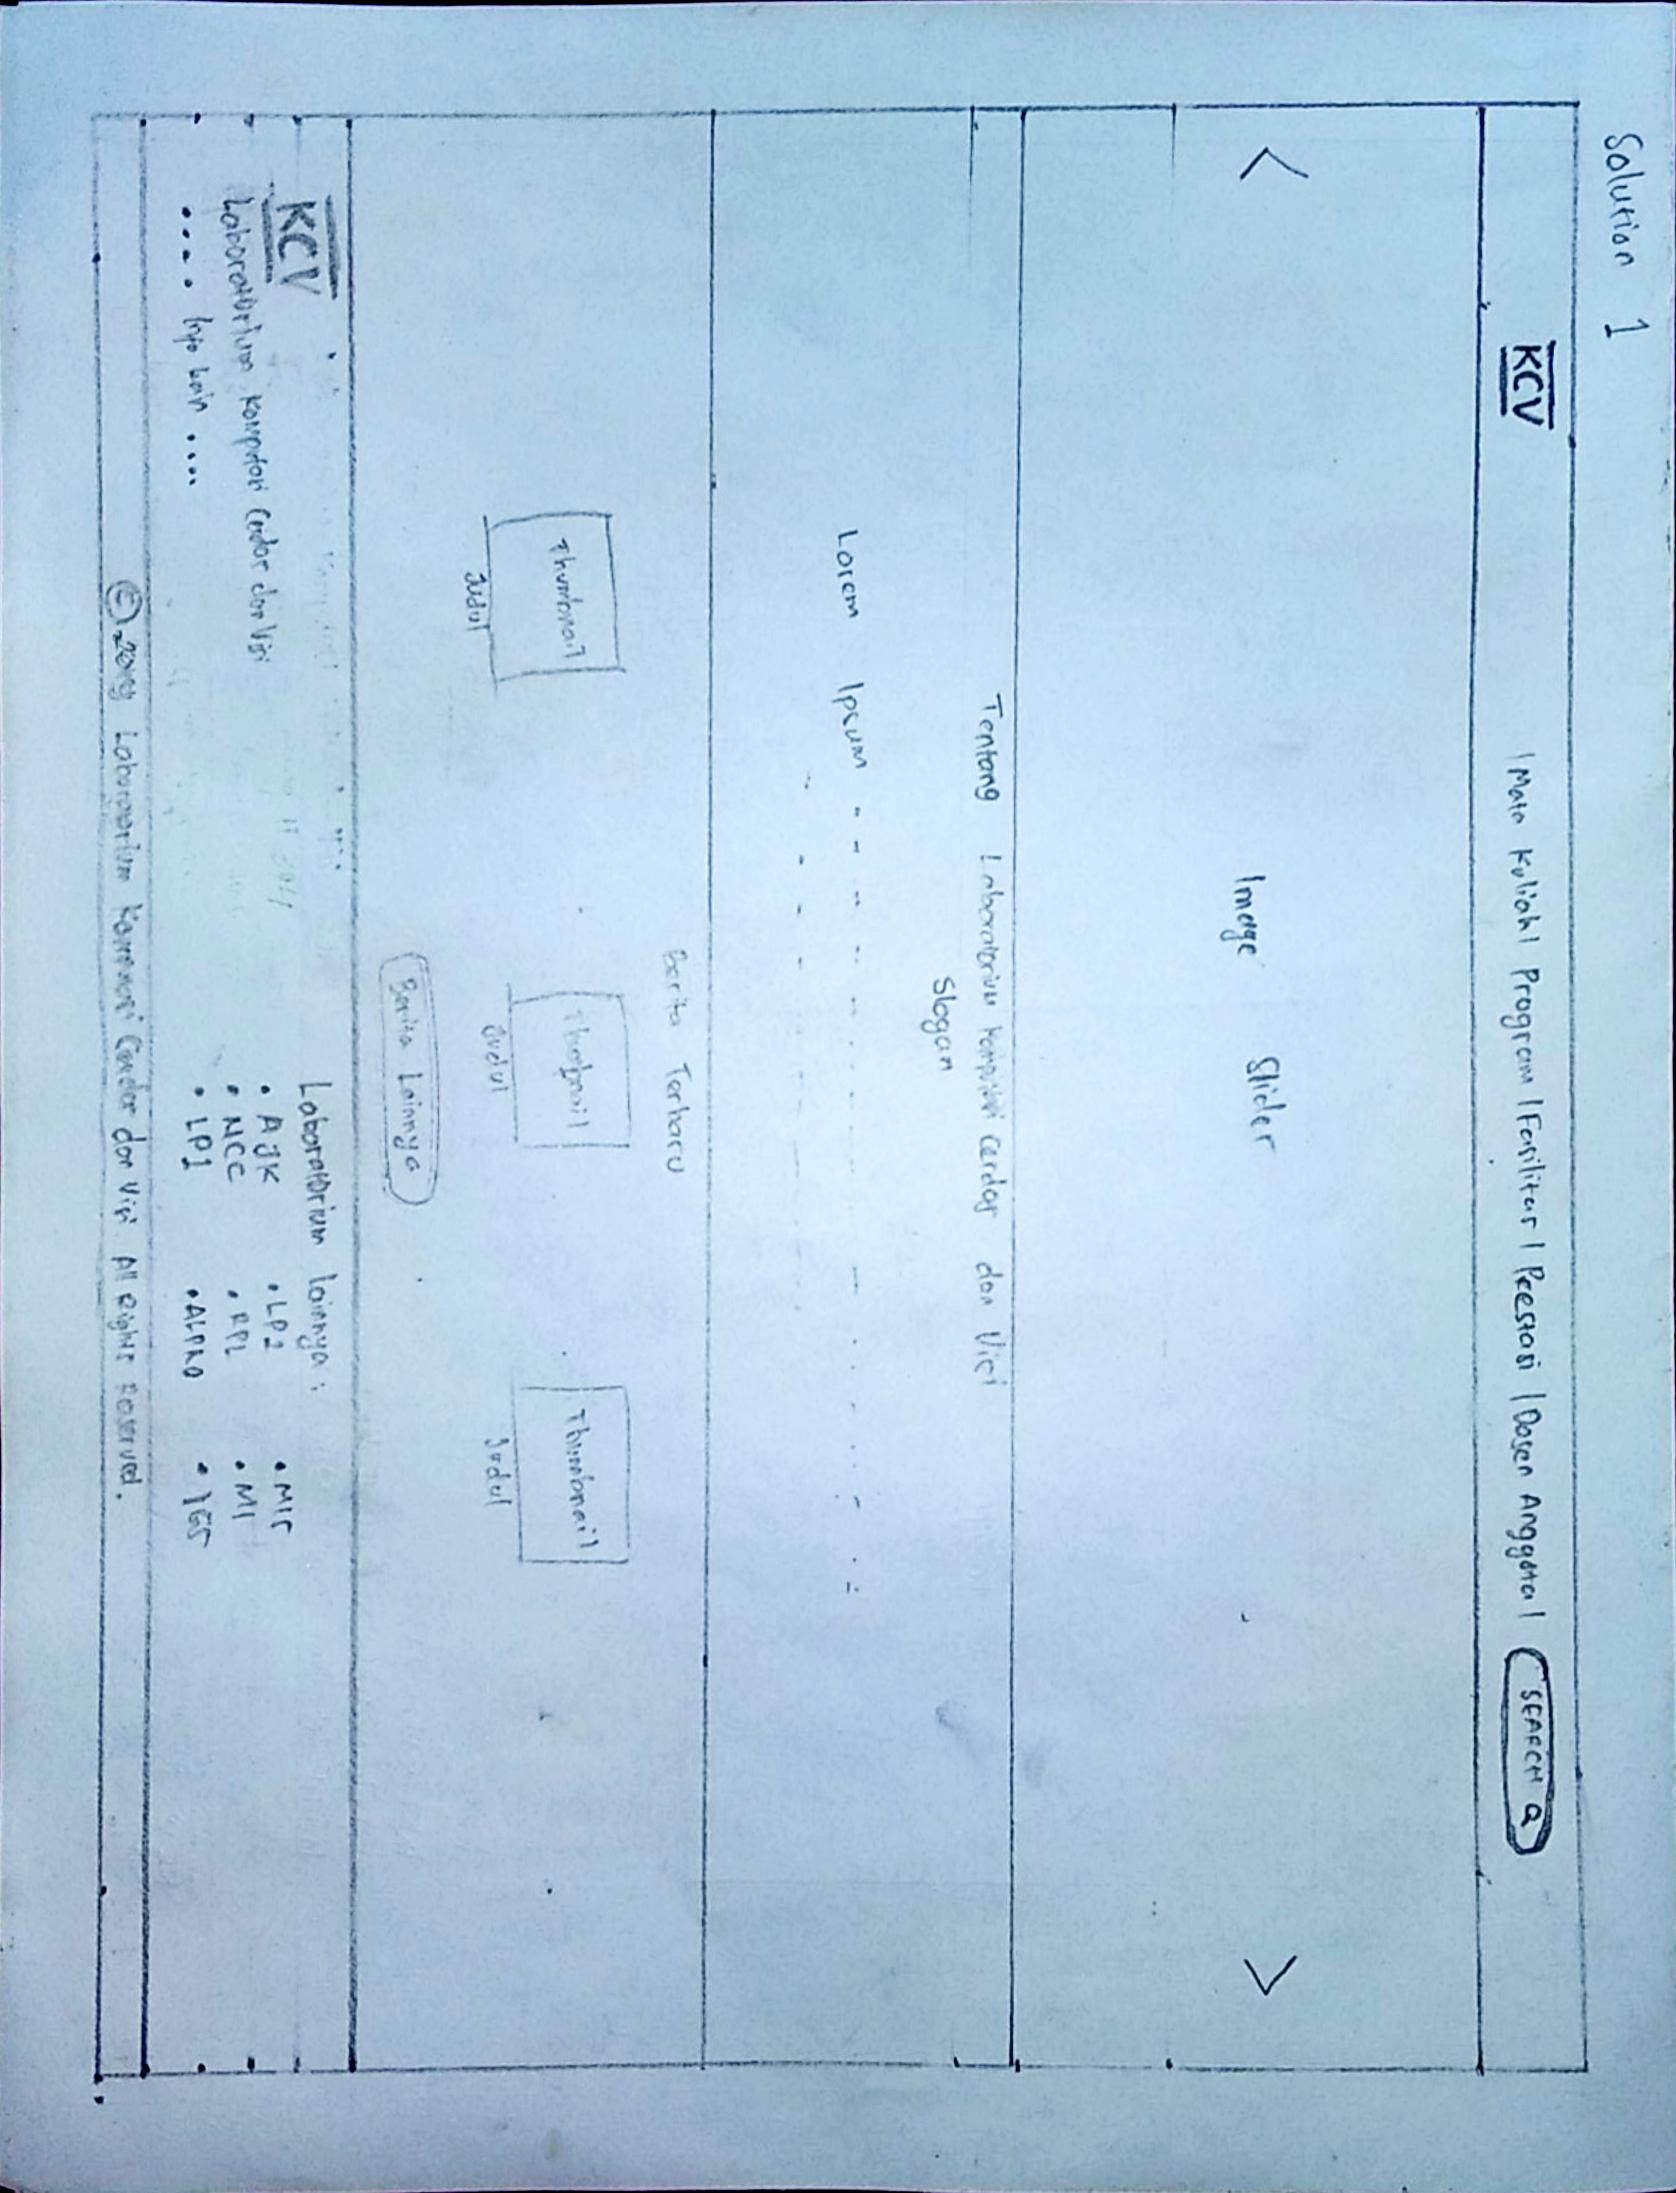 Solution 1
KCV
| Mata Kuliah | Program | Fasilitas | Prestasi | Dosen Anggota |
SEARCH
< Image Slider >
Tentang Laboratorium Komputasi Cerdas dan Visi
Slogan
Lorem Ipsum
Berita Terbaru
Thumbnail Thumbnail Thumbnail
Judul Judul Judul
Berita Lainnya
KCV
Laboratorium Komputasi Cerdas dan Visi
.... Info Lain ....
Laboratorium lainnya :
• AJK • LP2 • MIS
• NCC • RPL • MI
• LP1 • ALPRO • IGS
© Laboratorium Komputasi Cerdas dan Visi. All Rights Reserved.